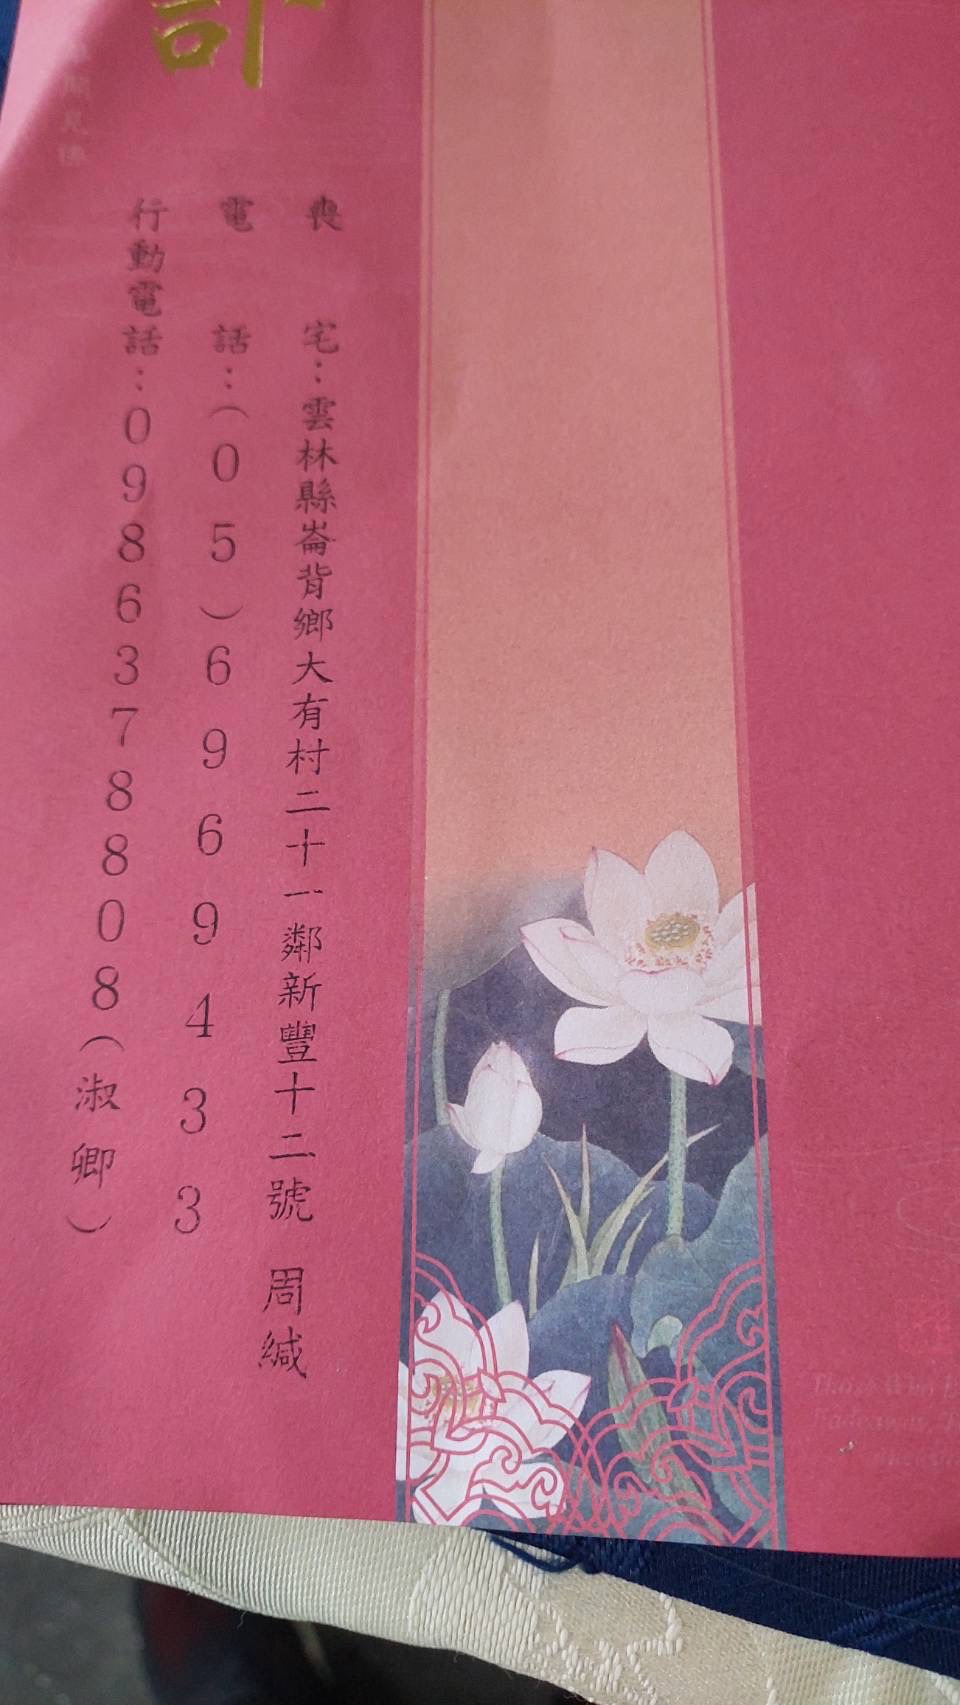 訃
喪宅：雲林縣崙背鄉大有村二十一鄰新豐十二號 周緘
電話：（05）6969433
行動電話：0986378808（淑卿）